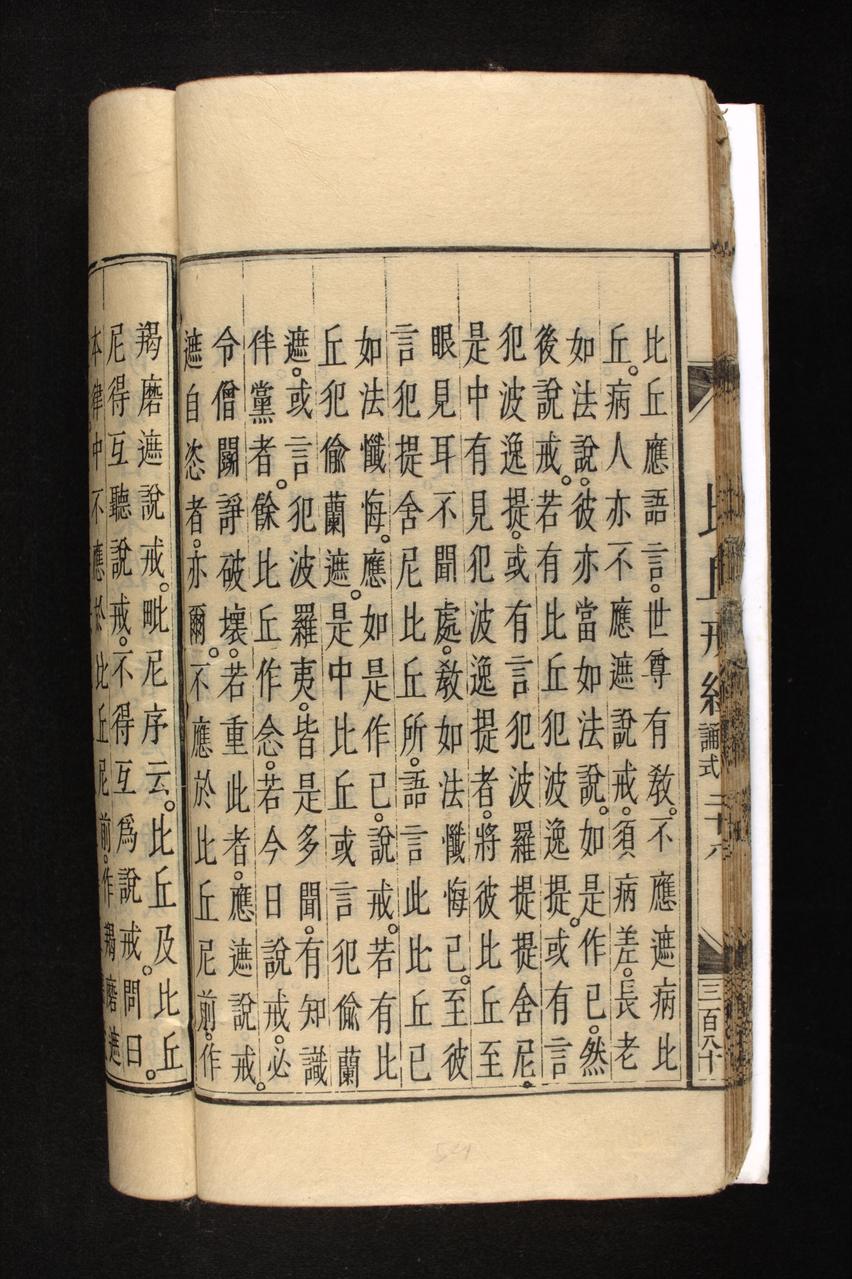 比丘戒經 誦式 三百八十
比丘應語言。世尊有敎。不應遮病比
丘。病人亦不應遮說戒。須病差。長老
如法說。彼亦當如法說。如是作已。然
後說戒。若有比丘犯波逸提。或有言
犯波逸提。或有言犯波羅提提舍尼。
是中有見犯波逸提者。將彼比丘至
眼見耳不聞處。敎如法懺悔已。至彼
言犯提舍尼比丘所。語言此比丘已
如法懺悔。應如是作已。說戒。若有比
丘犯偸蘭遮。是中比丘或言犯偸蘭
遮。或言犯波羅夷。皆是多聞。有知識
伴黨者。餘比丘作念。若今日說戒。必
令僧鬭諍破壞。若重此者。應遮說戒。
遮自恣者。亦爾。不應於比丘尼前。作
羯磨遮說戒。毗尼序云。比丘及比丘
尼得互聽說戒。不得互爲說戒。問曰。
本律中不應於比丘尼前。作羯磨遮